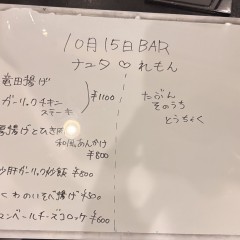 10月15日BAR
ナユタ♡れもん
竜田揚げ
ガーリックチキン
ステーキ
¥1100
厚揚げとひき肉
和風あんかけ
¥800
砂肝ガーリック炒飯 ¥800
ちくわのいそべ揚げ ¥500
カマンベールチーズコロッケ ¥600
たぶん
そのうち
とうちゃく